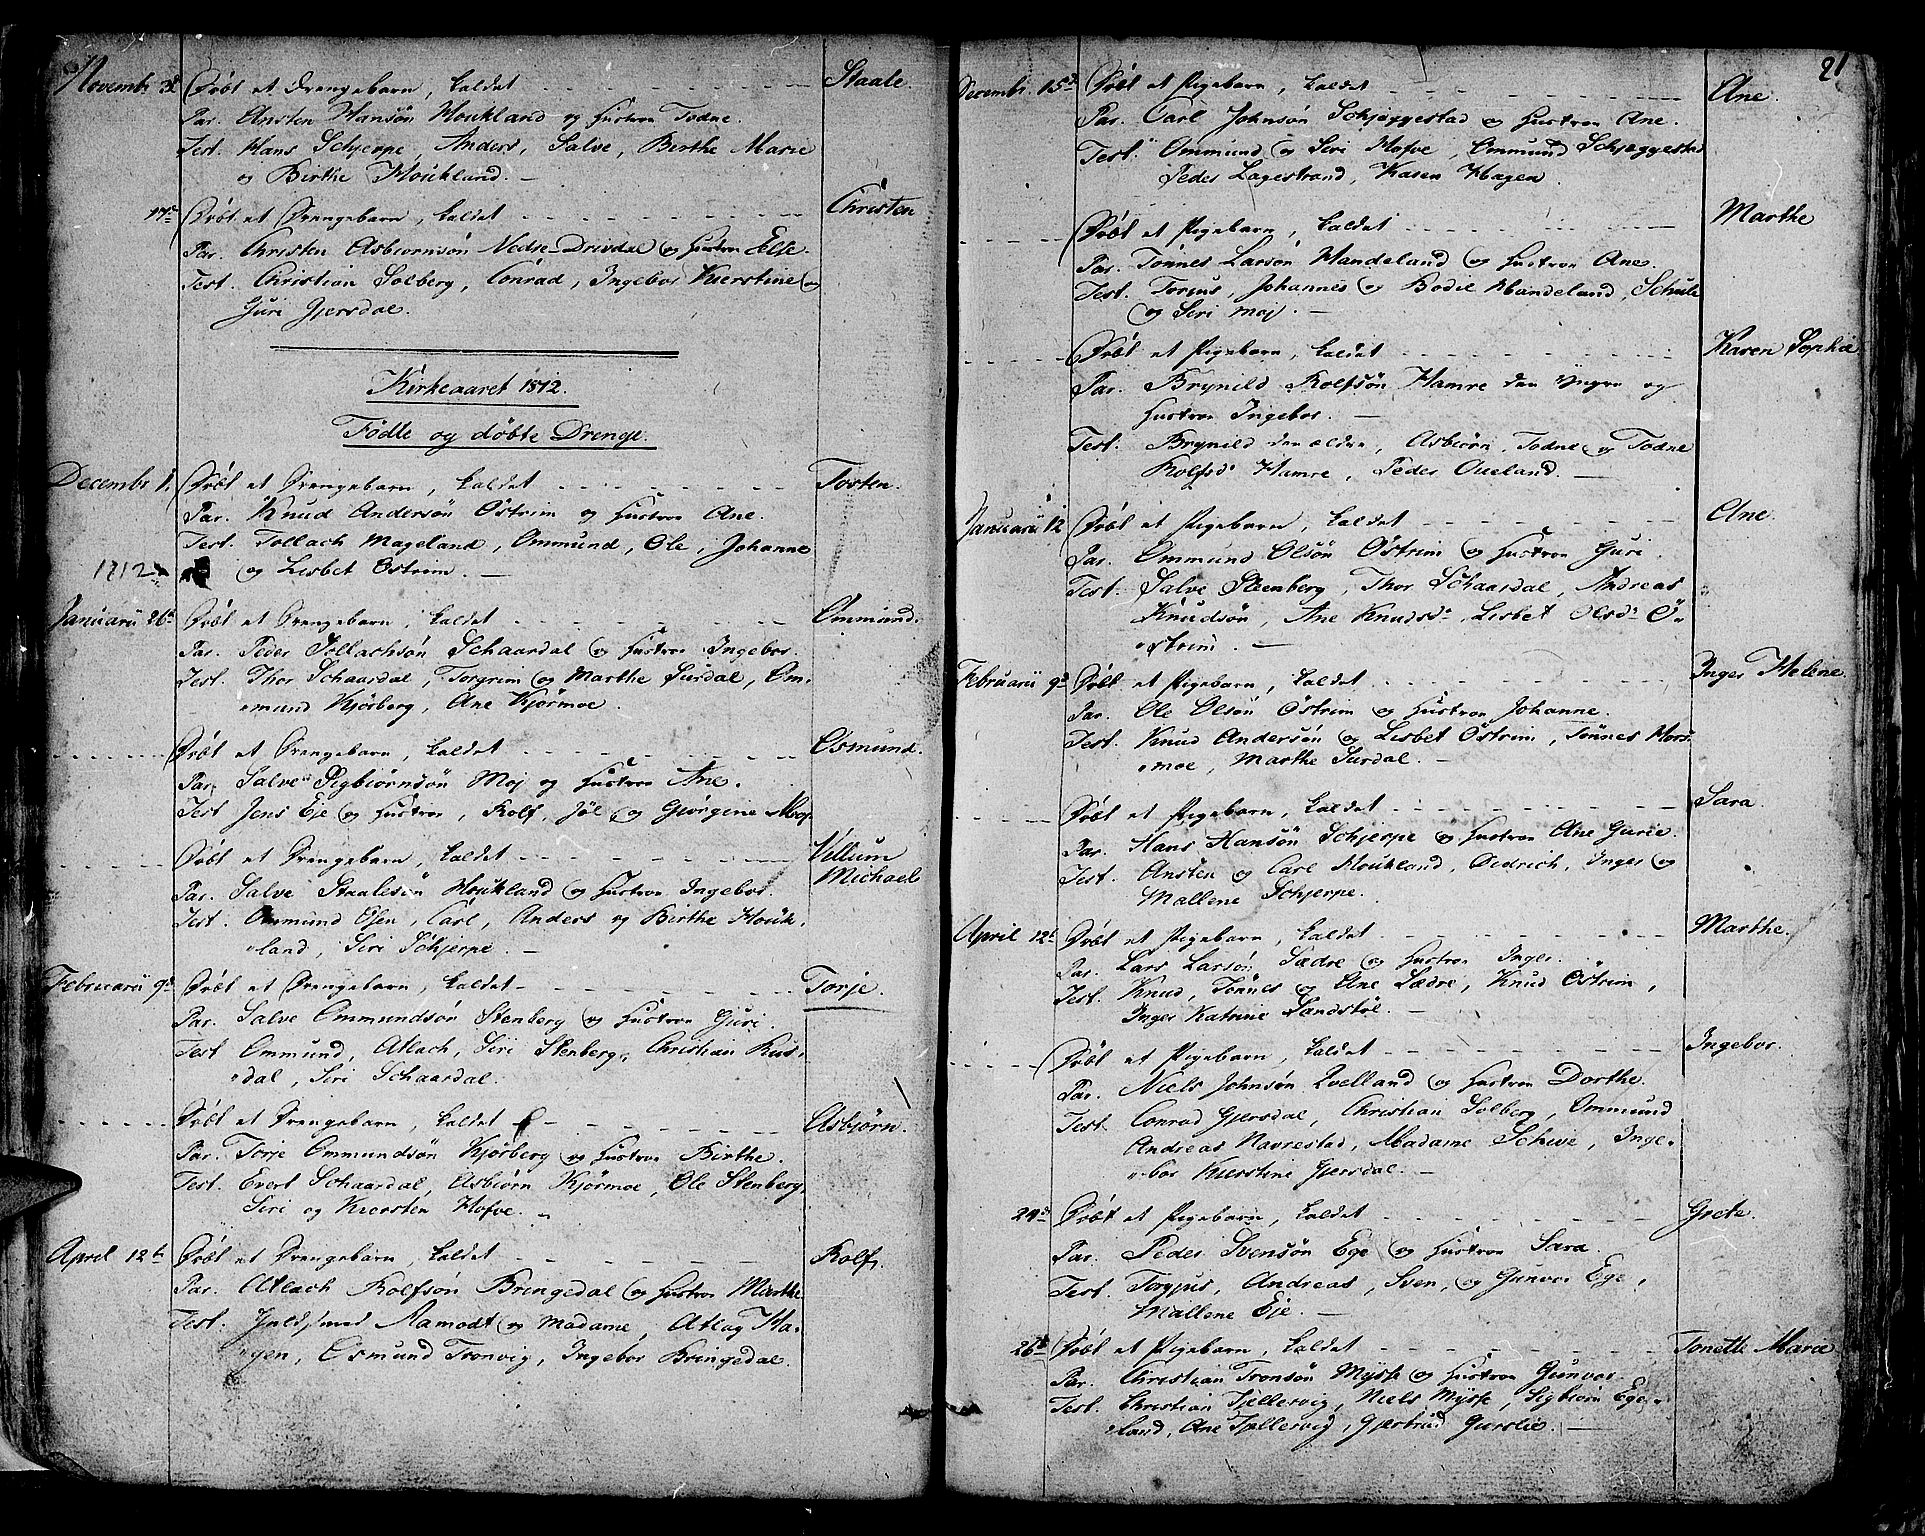 Novembr. 3d Döbt et Drengebarn, kaldet - - - Staale.
Par. Ansten Hansön Houkland og Hustroe Todne.
Test. Hans Schjerpe, Anders, Salve, Berthe Marie
og Birthe Houkland. -
17de Döbt et Drengebarn, kaldet - - - Christen
Par. Christen Asbiornsön Nedre-Drivdal og Hustroe Else.
Test. Christian Solberg, Conrad, Ingebor Kierstine og
Guri Gjersdal.
Kirkeaaret 1812.
Födte og döbte Drenge.
Decembr 1. Döbt et Drengebarn, kaldet - - - Tosten.
Par. Knud Andersön Östrim og Hustroe Ane.
Test. Tollach Mageland, Ommund, Ole, Johanne
1812 og Lisbet Östrim. -
Januarii 26de Döbt et Drengebarn, kaldet - - - Ommund.
Par. Peder Tollachsön Schaardal og Hustroe Ingebor.
Test. Thor Schaardal, Torgrim og Marthe Surdal, Om-
"mund Kjörberg, Ane Kjörmoe.
- - - Döbt et Drengebarn, kaldet - - - Osmund.
Par. Salve Sigbiörnsön Moj og Hustroe Ane.
Test Jens Eje og Hustroe, Rolf, Jöl og Giörgine Moj.
- - - Döbt et Drengebarn, kaldet - - - Villum
Michael
Par. Salve Staalesön Houkland og Hustroe Ingebor.
Test. Ommund Esen, Carl, Anders og Birthe Houk-
"land, Siri Schjerpe. -
Februarii 9de Döbt et Drengebarn, kaldet - - - Torje.
Par. Salve Ommundsön Stenberg og Hustroe Guri.
Test Ommund, Atlach, Siri Stenberg, Christian Rus-
"dal, Siri Schaardal.
- - - Döbt et Drengebarn, kaldet - - - Asbjörn.
Par. Torje Ommundsön Kjörberg og Hustroe Birthe.
Test. Evert Schaardal, Asbiörn Kjörmoe, Ole Stenberg,
Siri og Kiersten Hofve.
April 12te Döbt et Drengebarn, kaldet - - - Rolf.
Par. Atlach Rolfsön Bringedal og Hustroe Marthe
Test. Aamodt og Madame, Atlag Ha-
"gen, Osmund Tronvig, Ingebor Bringedal.
21
Decembr. 15de Döbt et Pigebarn, kaldet - - - Ane.
Par. Carl Johnsön Schjæggestad og Hustroe Ane.
Test. Ommund og Siri Hofve, Ommund Schjæggestad
Peder Lagestrand, Karen Hagen.
- - - Döbt et Pigebarn, kaldet - - - Marthe
Par. Tönnes Larsön Handeland og Hustroe Ane.
Test. Torius, Johannes og Bodil Handeland, Schule
og Siri Moj. -
- - - Döbt et Pigebarn, kaldet - - - Karen Sophie
Par. Brynild Rolfsön Hamre den Yngre og
Hustroe Ingebor. -
Test. Brynild den ældre, Asbiörn, Todne og Todne
Rolfsd. Hamre, Peder Aueland. -
Januarii 12 Döbt et Pigebarn, kaldet - - - Ane.
Par. Ommund Olsön Östrim og Hustroe Guri.
Test. Salve Stenberg, Thor Schaardal, Andreas
Knudsön, Ane Knudsd., Lisbet Olsd. Ö-
"strim. -
Februarii 9de Döbt et Pigebarn, kaldet - - - Inger Helene.
Par. Ole Olsön Östrim og Hustroe Johanne.
Test. Knud Andersön og Lisbet Östrim, Tönnes Mors-
"moe, Marthe Surdal. -
Döbt et Pigebarn, kaldet - - - Sara.
Par. Hans Hansön Schjerpe og Hustroe Ane Gurie.
Test. Ansten og Carl Houkland, Didrich, Inger og
Mallene Schjerpe.
April 12te Döbt et Pigebarn, kaldet - - - Marthe.
Par. Lars Larsön Sædre og Hustroe Inger.
Test. Knud, Tönnes og Ane Sædre, Knud Östrim,
Inger Katrine Sandstöl. -
- - - Döbt et Pigebarn, kaldet - - - Ingebor.
Par. Niels Johnsön Qvelland og Hustroe Dorthe.
Test. Conrad Gjersdal, Christian Solberg, Ommund
Andreas Navrestad, Madame Schive, Inge-
"bor Kierstine Gjersdal. -
24de Döbt et Pigebarn, kaldet - - - Grete
Par. Peder Svensön Ege og Hustroe Sara.
Test. Torjus, Andreas, Sven, og Gunvor Ege,
Mallene Eje. -
26de Döbt et Pigebarn, kaldet - - - Tonette Marie
Par. Christian Tronsön Mysse og Hustroe Gunvor.
Test. Christian Fjellervig, Niels Mysse, Sigbiörn Ege-
"land, Ane Fjellervig, Gjertrud Gurslie. -